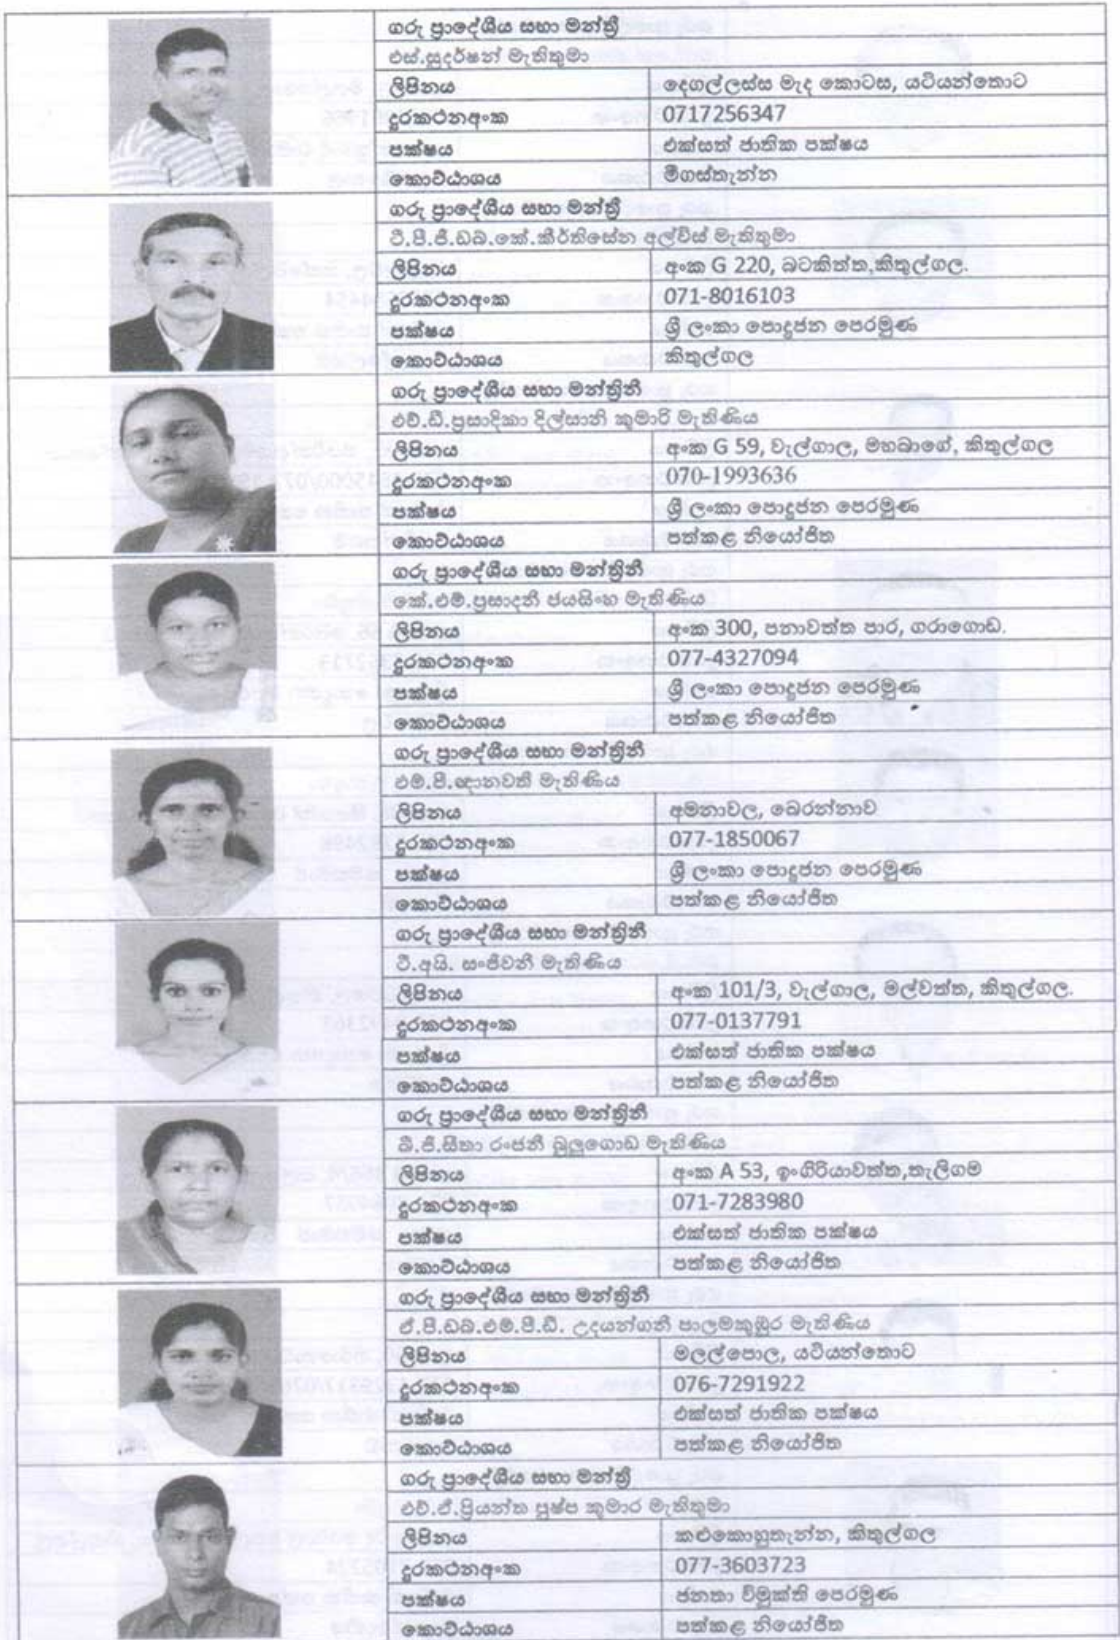 ගරු ප්‍රාදේශීය සභා මන්ත්‍රී
එස්.සුදර්ෂන් මැතිතුමා
ලිපිනය දෙගල්ලස්ස මැද කොටස, යටියන්තොට
දුරකථනඅංක 0717256347
පක්ෂය එක්සත් ජාතික පක්ෂය
කොට්ඨාශය මීගස්තැන්න
ගරු ප්‍රාදේශීය සභා මන්ත්‍රී
ටී.පී.ජී.ඩබ්.කේ.කීර්තිසේන අල්විස් මැතිතුමා
ලිපිනය අංක G 220, බටකිත්ත,කිතුල්ගල.
දුරකථනඅංක 071-8016103
පක්ෂය ශ්‍රී ලංකා පොදුජන පෙරමුණ
කොට්ඨාශය කිතුල්ගල
ගරු ප්‍රාදේශීය සභා මන්ත්‍රිනී
එච්.ඩී.ප්‍රසාදිකා දිල්සානි කුමාරි මැතිණිය
ලිපිනය අංක G 59, වැල්ගාල, මහබාගේ, කිතුල්ගල
දුරකථනඅංක 070-1993636
පක්ෂය ශ්‍රී ලංකා පොදුජන පෙරමුණ
කොට්ඨාශය පත්කළ නියෝජිත
ගරු ප්‍රාදේශීය සභා මන්ත්‍රිනී
කේ.එම්.ප්‍රසාදනී ජයසිංහ මැතිණිය
ලිපිනය අංක 300, පනාවත්ත පාර, ගරාගොඩ.
දුරකථනඅංක 077-4327094
පක්ෂය ශ්‍රී ලංකා පොදුජන පෙරමුණ
කොට්ඨාශය පත්කළ නියෝජිත
ගරු ප්‍රාදේශීය සභා මන්ත්‍රිනී
එම්.පී.ඥානවතී මැතිණිය
ලිපිනය අමනාවල, බෙරන්නාව
දුරකථනඅංක 077-1850067
පක්ෂය ශ්‍රී ලංකා පොදුජන පෙරමුණ
කොට්ඨාශය පත්කළ නියෝජිත
ගරු ප්‍රාදේශීය සභා මන්ත්‍රිනී
ටී.අයි. සංජීවනී මැතිණිය
ලිපිනය අංක 101/3, වැල්ගාල, මල්වත්ත, කිතුල්ගල.
දුරකථනඅංක 077-0137791
පක්ෂය එක්සත් ජාතික පක්ෂය
කොට්ඨාශය පත්කළ නියෝජිත
ගරු ප්‍රාදේශීය සභා මන්ත්‍රිනී
බී.ජී.සීතා රංජනී බුලුගොඩ මැතිණිය
ලිපිනය අංක A 53, ඉංගිරියාවත්ත,තැලිගම
දුරකථනඅංක 071-7283980
පක්ෂය එක්සත් ජාතික පක්ෂය
කොට්ඨාශය පත්කළ නියෝජිත
ගරු ප්‍රාදේශීය සභා මන්ත්‍රිනී
ඒ.පී.ඩබ්.එම්.පී.ඩී. උදයන්ගනී පාලමකුඹුර මැතිණිය
ලිපිනය මලල්පොල, යටියන්තොට
දුරකථනඅංක 076-7291922
පක්ෂය එක්සත් ජාතික පක්ෂය
කොට්ඨාශය පත්කළ නියෝජිත
ගරු ප්‍රාදේශීය සභා මන්ත්‍රී
එච්.ඒ.ප්‍රියන්ත පුෂ්ප කුමාර මැතිතුමා
ලිපිනය කළුකොහුතැන්න, කිතුල්ගල
දුරකථනඅංක 077-3603723
පක්ෂය ජනතා විමුක්ති පෙරමුණ
කොට්ඨාශය පත්කළ නියෝජිත